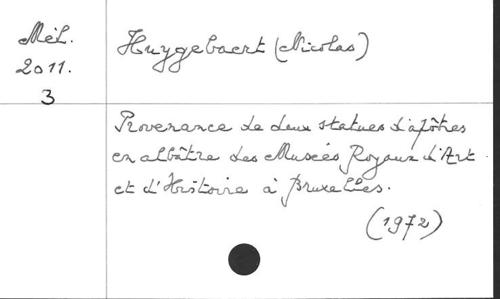 Mél.
2011.
3
Huygebaert (Nicolas)
Provenance de deux statues d'apôtres
en albâtre des Musées Royaux d'Art
et d'Histoire à Bruxelles.
(1972)